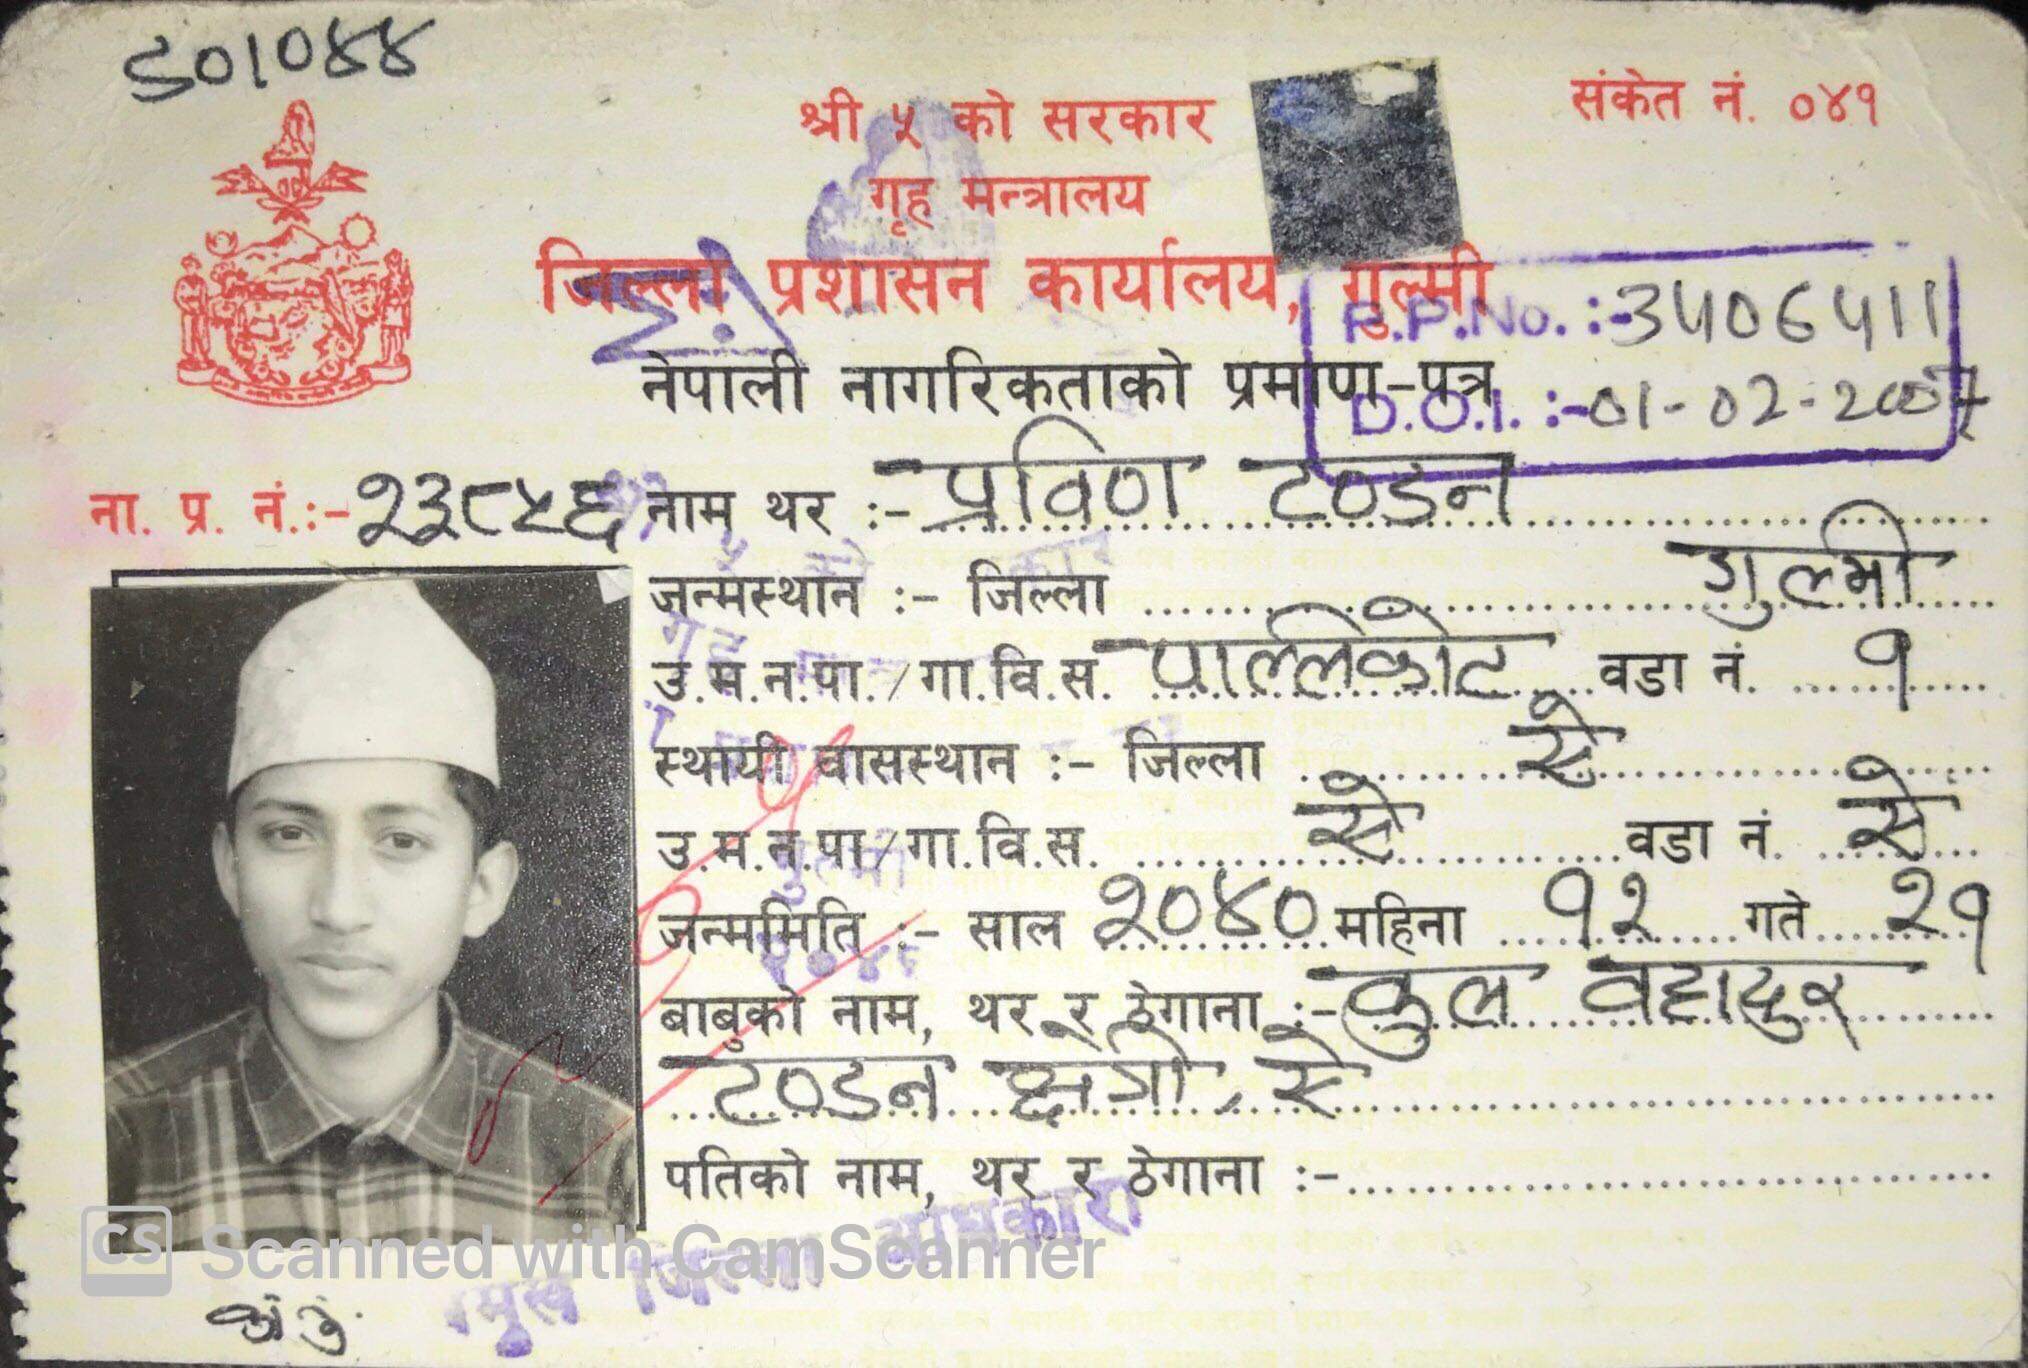 S०१०४४
श्री ५ को सरकार
संकेत नं. ०४१
गृह मन्त्रालय
जिल्ला प्रशासन कार्यालय, गुल्मी
P.P.No. :-3406411
नेपाली नागरिकताको प्रमाण-पत्र
D.O.I. :-01-02-2007
ना. प्र. नं.:- २३८५६ नाम थर :- प्रविण टण्डन
जन्मस्थान :- जिल्ला गुल्मी
उ.म.न.पा./गा.वि.स. पाल्लिकोट वडा नं. १
स्थायी वासस्थान :- जिल्ला ऐे
उ.म.न.पा/गा.वि.स. ऐे वडा नं. ऐे
जन्ममिति :- साल २०४० महिना १२ गते २१
बाबुको नाम, थर र ठेगाना :- कुल वहादुर
टण्डन क्षेत्री, ऐे
पतिको नाम, थर र ठेगाना :-
CS Scanned with CamScanner
प्रमुख जिल्ला अधिकारी